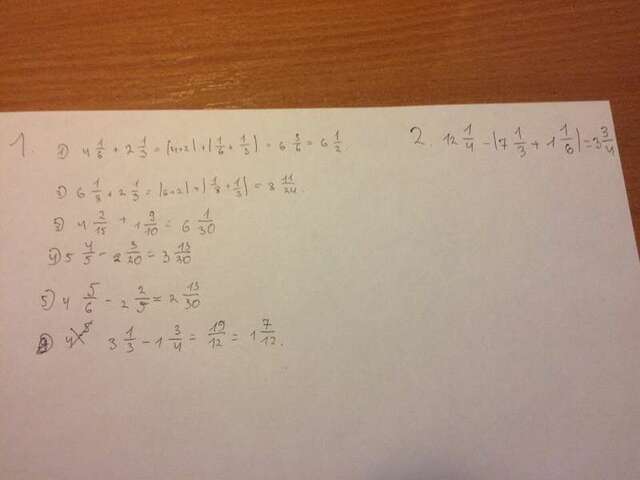 1.
1) 4 1/6 + 2 1/3 = (4+2)+(1/6 + 1/3) = 6 3/6 = 6 1/2.
2) 6 1/8 + 2 1/3 = (6+2)+(1/8 + 1/3) = 8 11/24.
3) 4 2/15 + 1 9/10 = 6 1/30
4) 5 4/5 - 2 3/20 = 3 13/30
5) 4 5/6 - 2 2/5 = 2 13/30
3 1/3 - 1 3/4 = 19/12 = 1 7/12.
2. 12 1/4 - (7 1/3 + 1 1/6) = 3 3/4